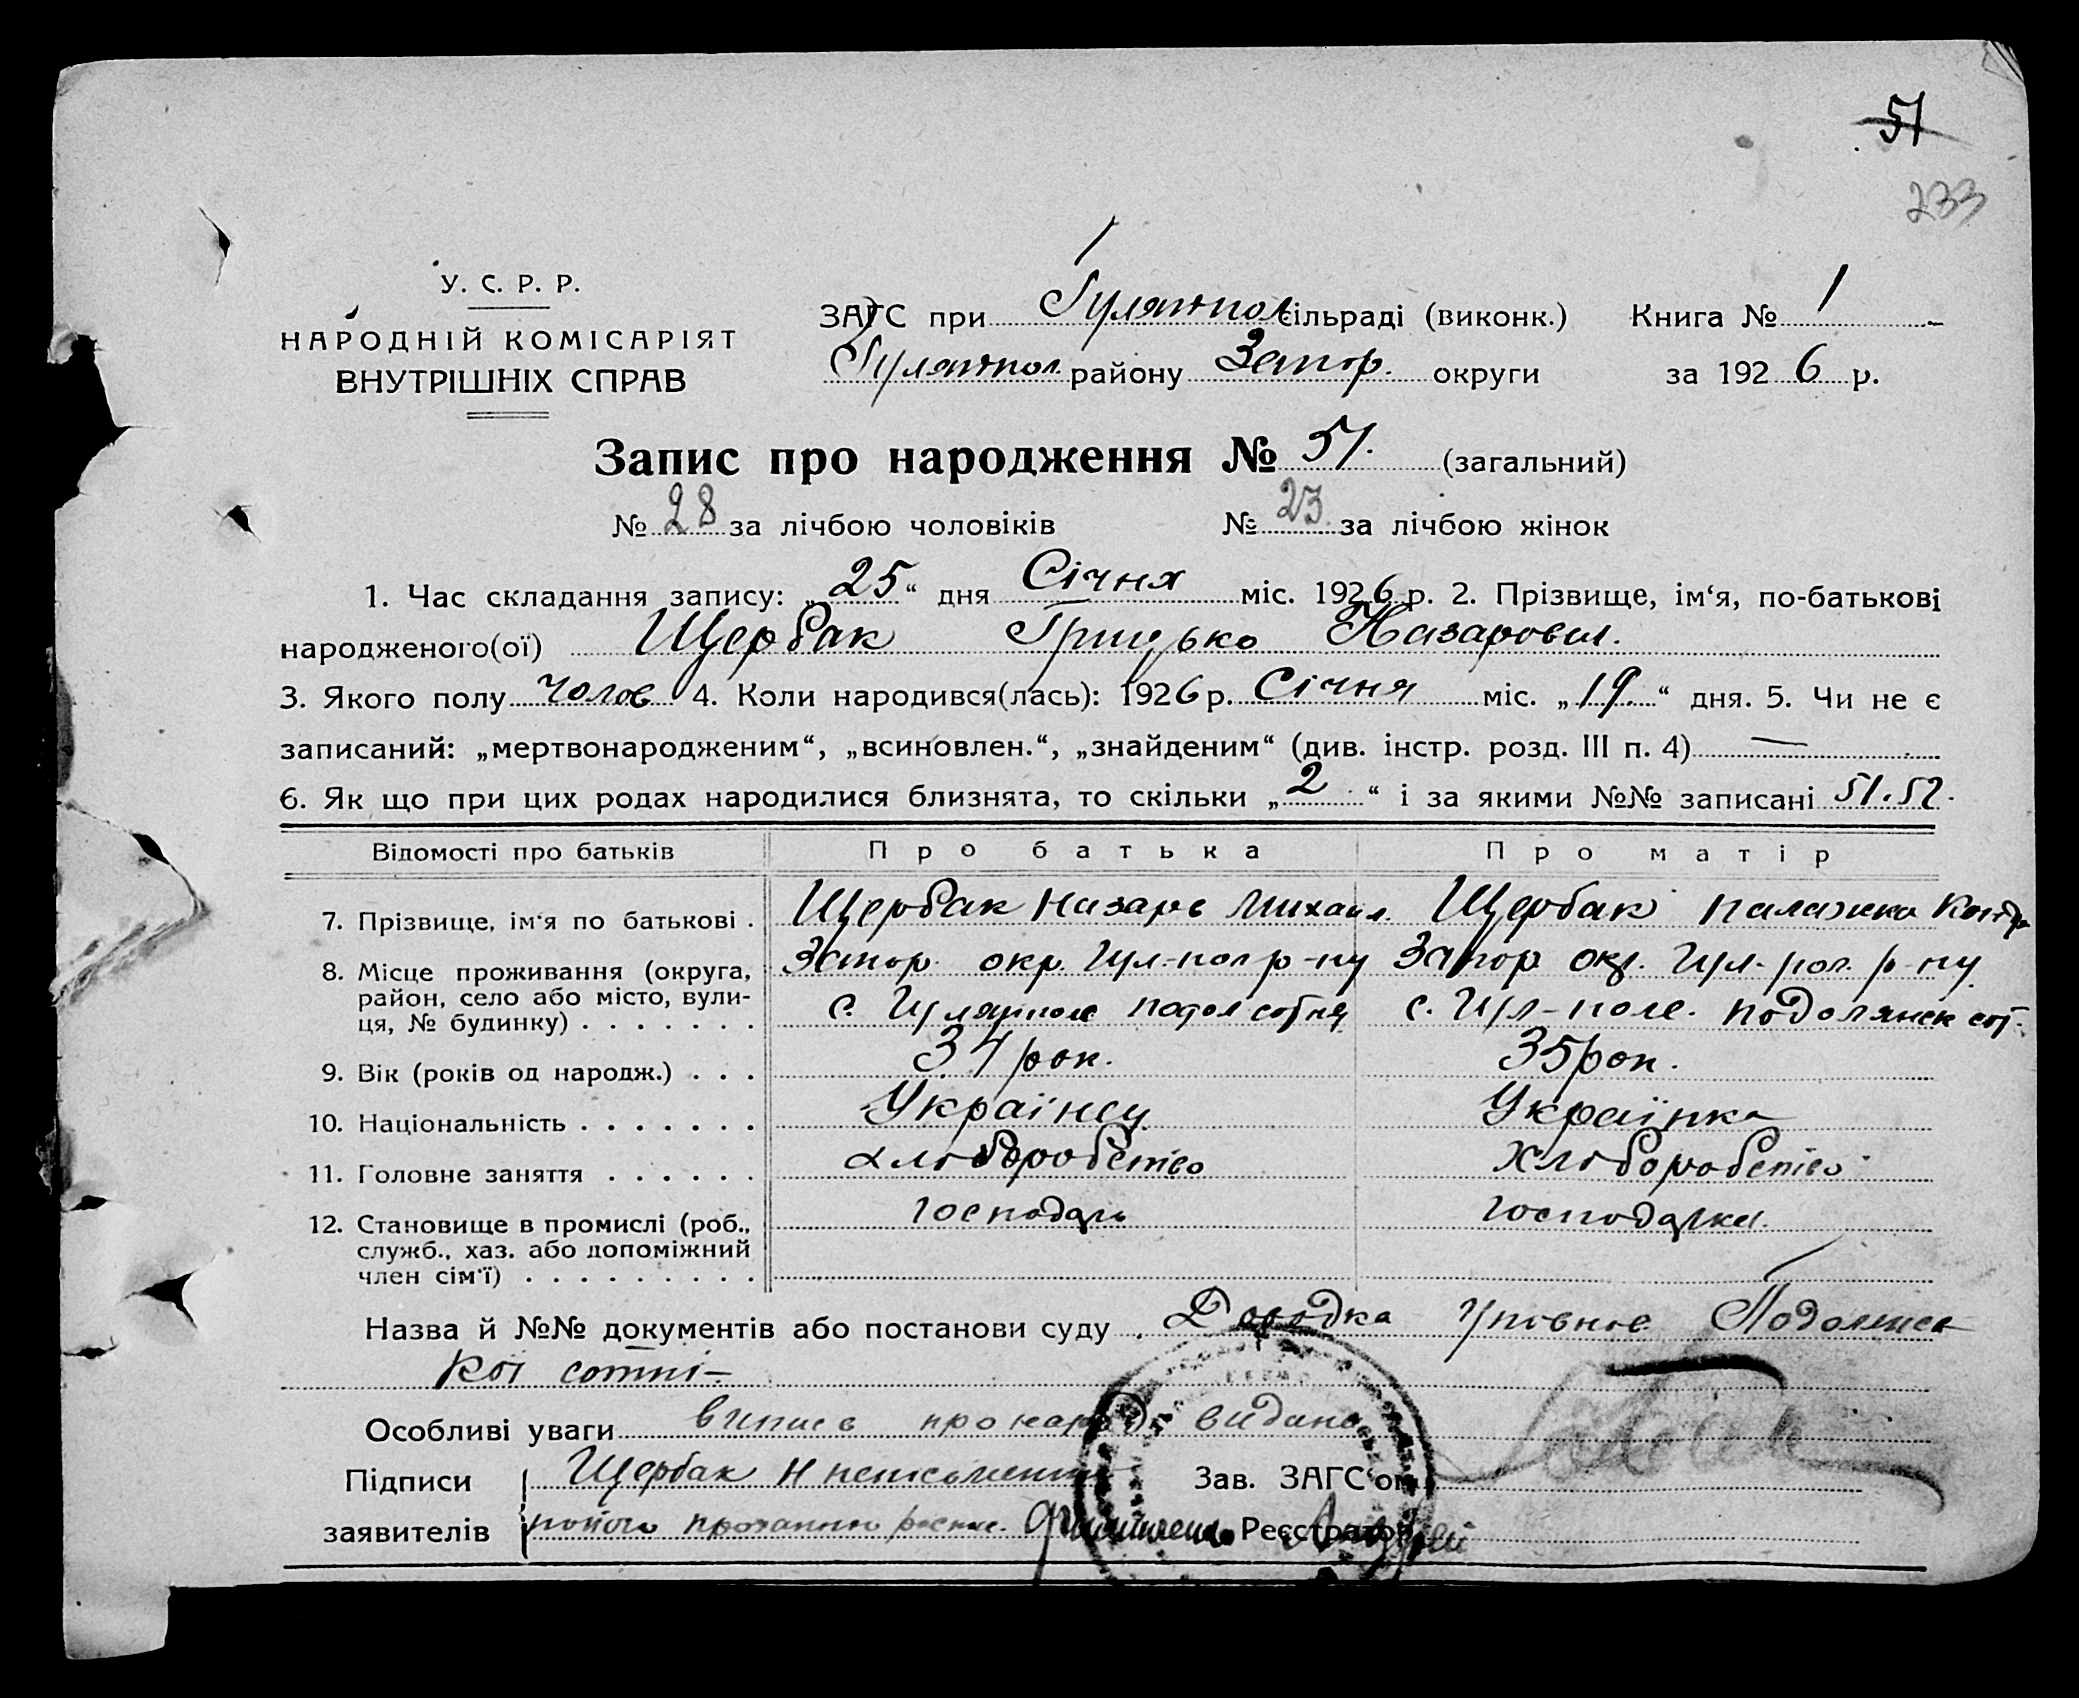 51
233
У. С. Р. Р.
НАРОДНІЙ КОМІСАРІЯТ
ВНУТРІШНІХ СПРАВ
ЗАГС при Гуляйпол сільраді (виконк.) Книга № 1
Гуляйпол. району Запор. округи за 1926 р.
Запис про народження № 51. (загальний)
№ 28 за лічбою чоловіків № 23 за лічбою жінок
1. Час складання запису: „25“ дня Січня міс. 1926 р. 2. Прізвище, ім‘я, по-батькові
народженого(ої) Щербак Грицько Назарович.
3. Якого полу чолов 4. Коли народився(лась): 1926 р. Січня міс. „19.“ дня. 5. Чи не є
записаний: „мертвонародженим“, „всиновлен.“, „знайденим“ (див. інстр. розд. III п. 4) —
6. Як що при цих родах народилися близнята, то скільки „2“ і за якими №№ записані 51.52.
Відомості про батьків Про батька Про матір
7. Прізвище, ім‘я по батькові . Щербак Назарь Михаил. Щербак Палажка Кондр
8. Місце проживання (округа, Запор. окр. Гул-пол р-ну Запор. окр. Гул-пол. р-ну
район, село або місто, вули- с. Гуляйполе Подол сотня с. Гул-поле. Подолянск сот.
ця, № будинку) . . . . . . .
9. Вік (років од народж.) . . . 34 рок. 35 рок.
10. Національність . . . . . . . Українец Українка
11. Головне заняття . . . . . . хліборобство Хліборобство
12. Становище в промислі (роб., господарь господарка.
служб., хаз. або допоміжний
член сім‘ї) . . . . . . . . .
Назва й №№ документів або постанови суду . Довідка Подолянсь
кої сотні –
Особливі уваги випись про народ. видана
Підписи Щербак Н неписьменн Зав. ЗАГС‘ом
заявителів його проханню распис. Реєстратор